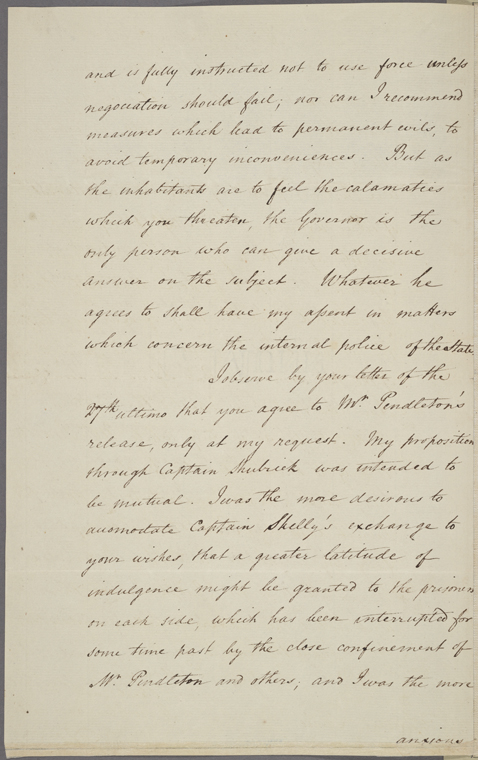 and is fully instructed not to use force unless
negociation should fail; nor can I recommend
measures which lead to permanent evils, to
avoid temporary inconveniences. But as
the inhabitants are to feel the calamaties
which you threaten, the Governor is the
only person who can give a decisive
answer on the subject. Whatever he
agrees to shall have my assent in matters
which concern the internal police of the State.
I observe by your letter of the
27th ultimo that you agree to Mr Pendleton's
release, only at my request. My proposition
through Captain Shubrick was intended to
be mutual. I was the more desirous to
accomodate Captain Skelly's exchange to
your wishes, that a greater latitude of
indulgence might be granted to the prisoners
on each side, which has been interrupted for
some time past by the close confinement of
Mr Pendleton and others; and I was the more
anxious